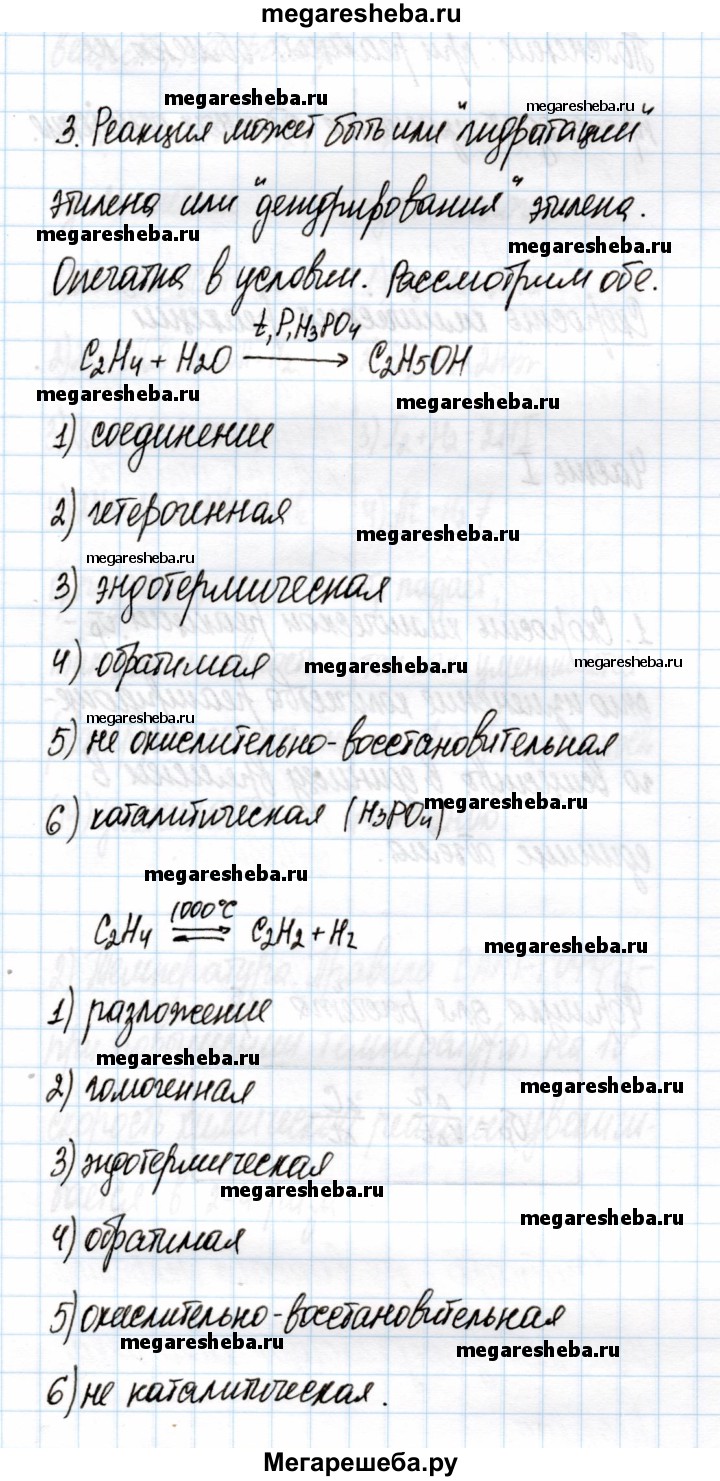 megaresheba.ru
megaresheba.ru
megaresheba.ru
3. Реакция может быть или "гидратации"
этилена или "дегидрирования" этилена.
megaresheba.ru
megaresheba.ru
Опечатка в условии. Рассмотрим обе.
C2H4 + H2O —t, P, H3PO4→ C2H5OH
megaresheba.ru
megaresheba.ru
1) соединение
2) гетерогенная
megaresheba.ru
megaresheba.ru
3) эндотермическая
4) обратимая
megaresheba.ru
megaresheba.ru
megaresheba.ru
5) не окислительно-восстановительная
6) каталитическая (H3PO4)
megaresheba.ru
megaresheba.ru
C2H4 ⇌ 1000°C C2H2 + H2
megaresheba.ru
1) разложение
megaresheba.ru
2) гомогенная
megaresheba.ru
3) эндотермическая
megaresheba.ru
megaresheba.ru
4) обратимая
5) окислительно-восстановительная
megaresheba.ru
megaresheba.ru
6) не каталитическая.
Мегарешеба.ру